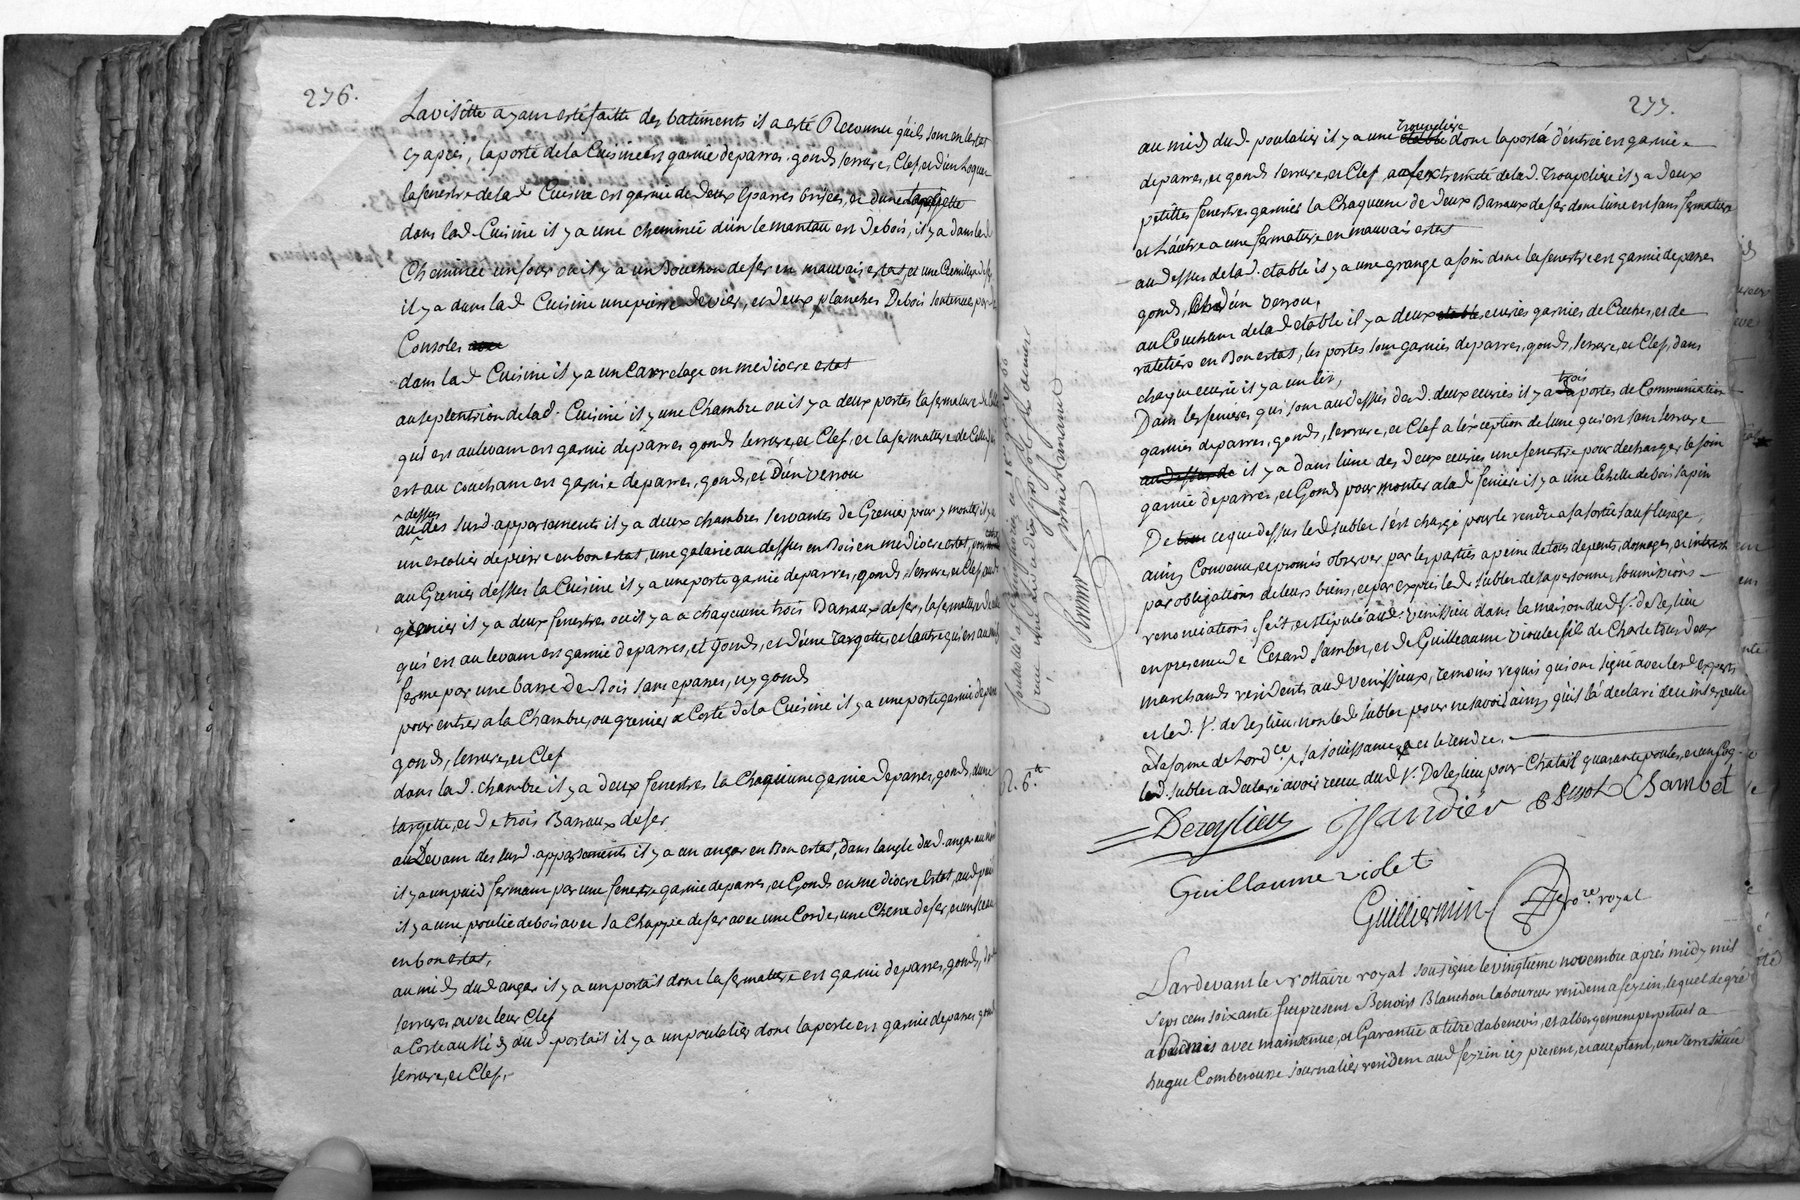 276.
La visitte ayant esté faitte des batiments il a esté Reconnu quils sont en lestat
cy apres, la porte de la Cuisine est garnie deparres, gonds serrure, Clef, et d'un Loquet
la fenestre de lad. Cuisine est garnie de deux Eparres brisées, et d'une targette
dans lad. Cuisine il y a une cheminée d'un le mantau est de bois, il y a dans lad.
Cheminée un four ou il y a un Bouchon de fer en mauvais estat, et une Cremillere de fer
il y a dans lad. Cuisine une pierre devier, et deux planches De bois soutenues par
Consoles
dans lad. Cuisine il y a un Carrelage en mediocre estat
au septentrion de lad. Cuisine il y une Chambre ou il y a deux portes la fermature de Celle
qui est au levant est garnie deparres gonds serrure, et Clef, et la fermature de Celle qui
est au couchant est garnie deparres, gonds, et D'un verrou
au dessus des susd. appartements il y a deux chambres servantes de Grenier pour y monter il y a
un escalier de pierre en bon estat, une galarie au dessus en Bois en mediocre estat, pour
au Grenier dessus la Cuisine il y a une porte garnie deparres, gonds, serrure, et Clef, aud.
grenier il y a deux fenestres ou il y a a chaquune trois Barraux de fer, la fermature de celle
qui est au levant est garnie deparres, et Gonds, et d'une targette, et l'autre qui est au midy
ferme par une barre de Bois sans eparres, ny gonds
pour entrer a la Chambre, ou grenier a Costé de la Cuisine il y a une porte garnie deparres
gonds, serrure, et Clef
dans lad. chambre il y a deux fenestres la Chaquune garnie deparres, gonds, d'une
targette, et de trois Barraux de fer
au Devant des susd. appartements il y a un angar en Bon estat, dans langle dud. angar au nord
il y a un puid fermant par une fenestre garnie deparres, et Gonds en mediocre Estat, aud. puid
il y a une poulie de bois avec sa Chappe de fer avec une Corde, une Chene de fer, et un seau
en bon estat,
au midy dud. angar il y a un portait dont la fermature est garnie deparres, gonds, deux
serrures, avec leur Clef
a Costé au Midy dud. portait il y a un poulalier dont la porte est garnie deparres gonds
serrure, et Clef,
277.
au midy dud. poulalier il y a une Troupeliere dont la porte d'entrée est garnie
deparres, et gonds serrure, et Clef, a lextremité de lad. Troupeliere il y a deux
petittes fenestres garnies la Chaquune de deux Barraux de fer dont lune est sans fermature
et l'autre a une fermature en mauvais estat
au dessus de lad. etable il y a une grange a foin dont la fenestre est garnie deparres
gonds, et d'un verrou,
au Couchant de lad. etable il y a deux ecuries garnies de Creches, et de
rateliers en Bon estat, les portes sont garnies deparres, gonds, serrure, et Clef, dans
chaque ecurie il y a un lit,
Dans les fenieres qui sont au dessus desd. deux ecuries il y a trois portes de Communication
garnies deparres, gonds, serrure, et Clef a l'exception de lune qui est sans serrure
il y a dans lune des deux ecuries une fenestre pour decharger le foin
garnie deparres, et Gonds pour monter a lad. feniere il y a une Echelle de bois sapin
De ce que dessus led. sublet s'est chargé pour le rendre a sa sortie sauf lusage,
ainsy Convenu, et promis observer par les parties a peine de tous depents, domages, et interests
par obligations de leurs biens, et par exprés led. sublet de sa personne, soumissions
renonciations, fait, et stipulé aud. Venissieu dans la maison dud. Sr. de Reylieu
en presence de Cezard Jambet, et de Guilleaume Violet fils de Charle tous deux
marchands residents aud. Venissieux, temoins requis qui ont signé avec lesd. experts
et led. Sr. de Reylieu non led. sublet pour ne savoir ainsy qu'il la declaré de ce interpellé
a la forme de Lordce. la jouissance, et le rendre.
led. sublet a declaré avoir receu dud. Sr. De Reylieu pour Chatail quarante poules, et un Coq
Dereylieu Chambet
Guillaume violet
Guilliermin no.re royal
Controllé a
quatre
R. 6.tt
Pardevant le Nottaire royal soussigné le vingtieme novembre aprés midy mil
sept cent soixante fut present Benoist Blanchon laboureur resident a feyzin, lequel de gré
a Remis avec maintenue, et Garantie a titre d'abenevis, et albergement perpetuel a
hugue Comberousse journalier resident aud. feyzin icy present, et acceptant, une terre située